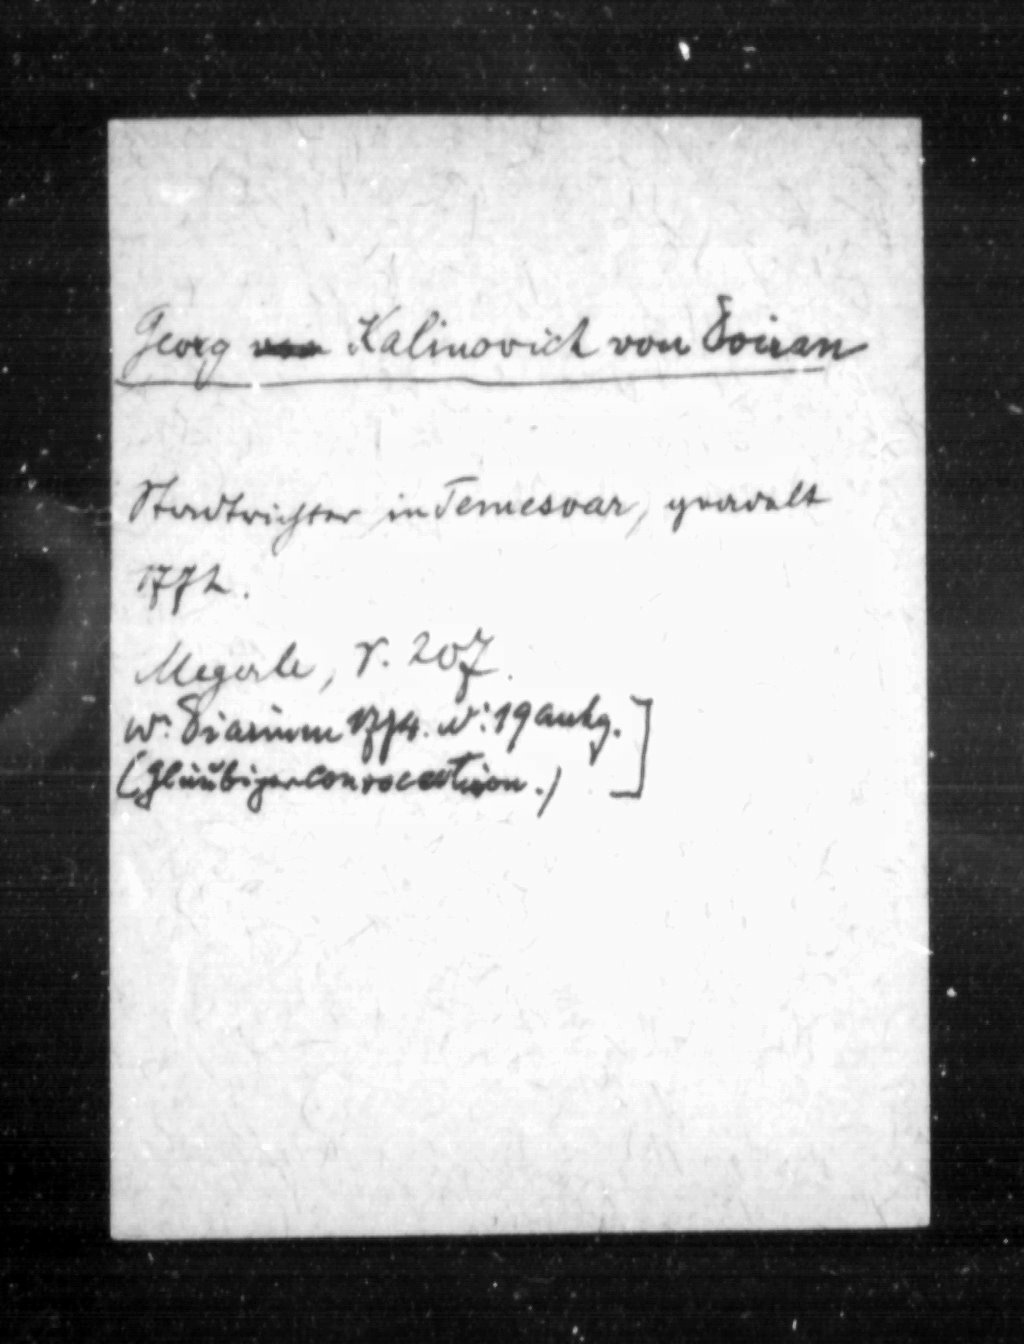 Georg von Kalinovich von Doiran
Stadtrichter in Temesvar, geadelt
1772.
Megerle, S. 207.
W: Diarium 1774. N: 19 anhg.
(Gläubigerconvocation.)]